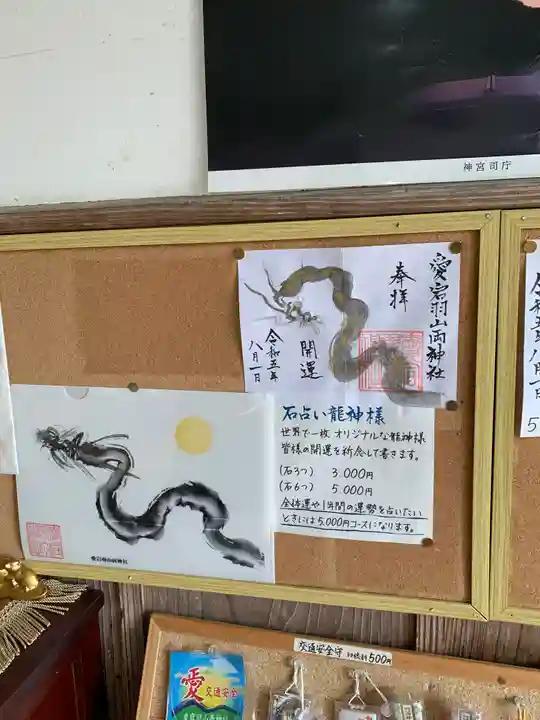 神宮司庁
愛宕羽山両神社
奉拝
開運
令和五年
八月一日
石占い龍神様
世界で一枚 オリジナルな龍神様
皆様の開運を祈念して書きます。
(石3つ) 3.000円
(石6つ) 5.000円
金銭運や1年間の運勢を占いたい
ときには5.000円コースになります。
愛宕羽山両神社
令和五年
八月一日
交通安全守
500円
愛
交通安全